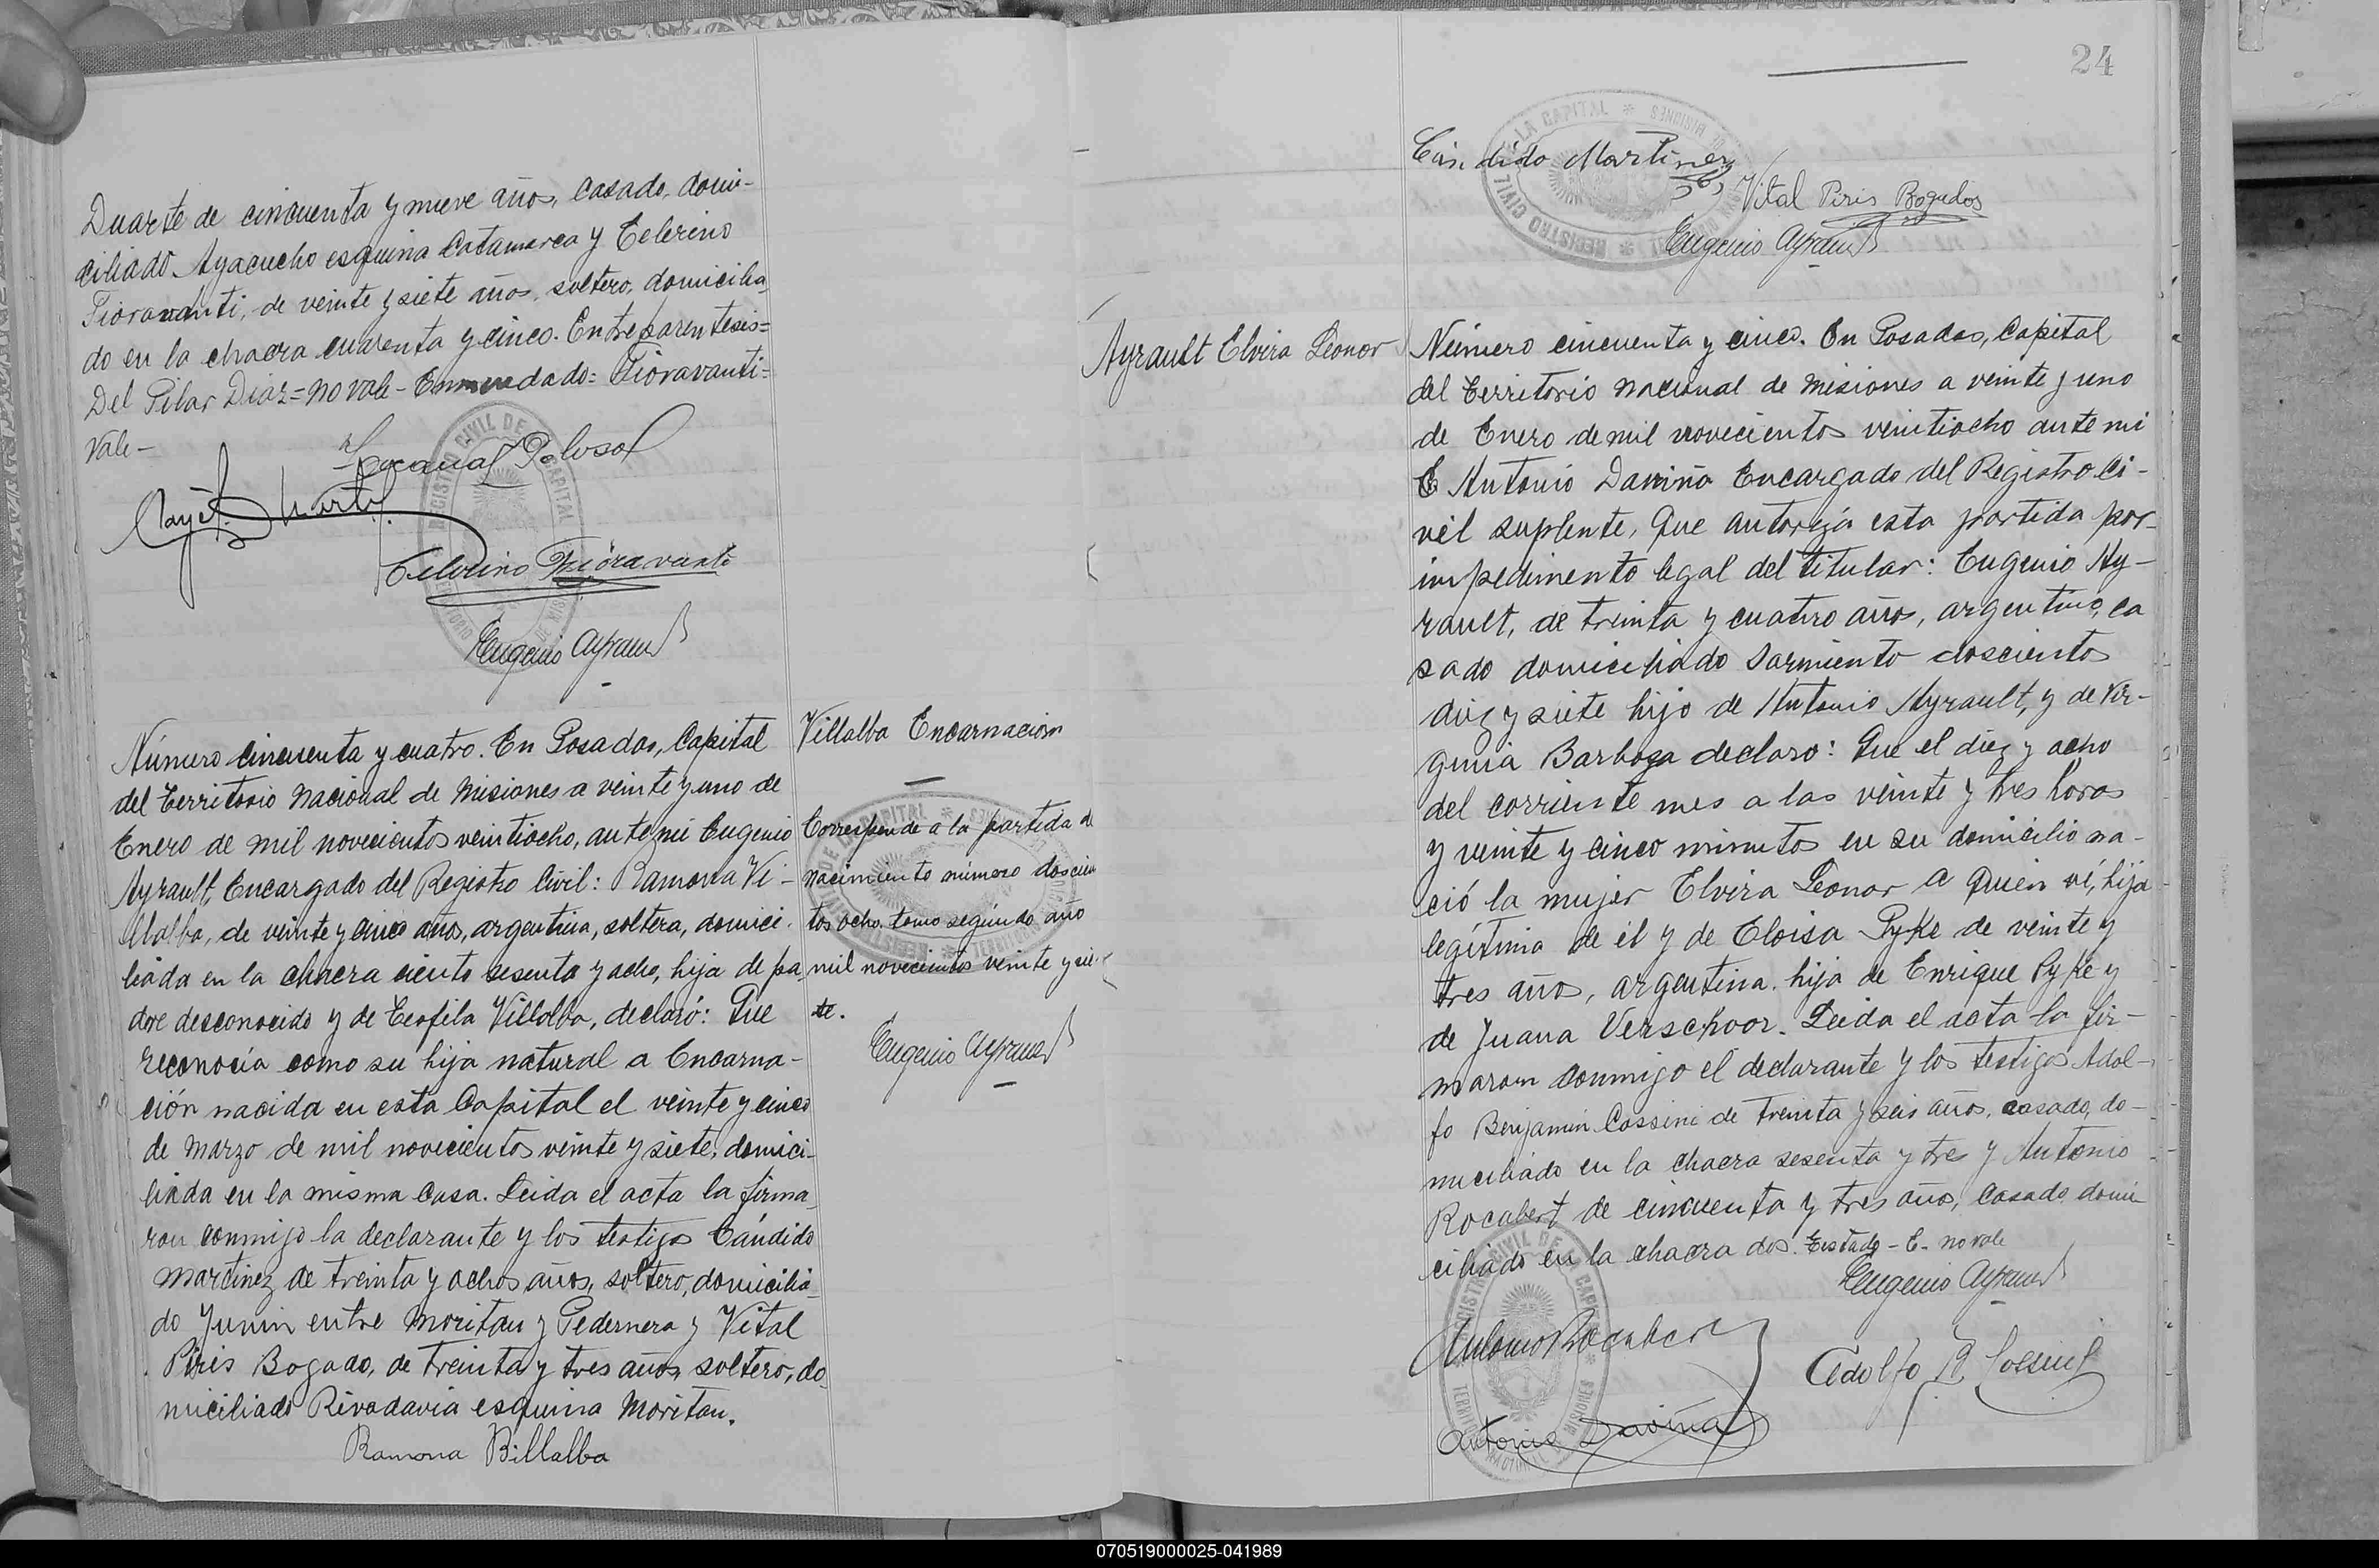 Duarte de cincuenta y nueve años, casado, domi-
ciliado Ayacucho esquina Catamarca y Celerino
Fioravanti, de veinte y siete años, soltero, domicilia
do en la chacra cuarenta y cinco. Entreparentesis=
Del Pilar Diaz=no vale- Enmendado= Fioravanti=
Vale-
Celerino Fioravanti
Eugenio Ayrault
Número cincuenta y cuatro. En Posadas, Capital
del Territorio Nacional de Misiones a veinte y uno de
Enero de mil novecientos veintiocho, ante mi Eugenio
Ayrault, Encargado del Registro Civil: Ramona Vi-
llalba, de veinte y cinco años, argentina, soltera, domici
liada en la chacra ciento sesenta y ocho, hija de pa
dre desconocido y de Teofila Villalba, declaró: Que
reconocía como su hija natural a Encarna-
ción nacida en esta Capital el veinte y cinco
de Marzo de mil novecientos veinte y siete, domici-
liada en la misma casa. Leida el acta la firma
ron conmigo la declarante y los testigos Cándido
Martinez de treinta y ochos años, soltero, domicilia
do Junin entre Moritan y Pedernera y Vital
Piris Bogado, de treinta y tres años, soltero, do
miciliado Rivadavia esquina Moritan.
Ramona Billalba
Villalba Encarnación
Corresponde a la partida de
nacimiento número doscien
tos ocho tomo segundo año
mil novecientos veinte y sie
te.
Eugenio Ayrault
24
Cándido Martinez
Vital Piris Bogados
Eugenio Ayrault
Ayrault Elvira Leonor
Número cincuenta y cinco. En Posadas, Capital
del Territorio Nacional de Misiones a veinte y uno
de Enero de mil novecientos veintiocho ante mi
E Antonio Daviña Encargado del Registro Ci-
vil suplente, que autoriza esta partida por
impedimento legal del titular: Eugenio Ay-
rault, de treinta y cuatro años, argentino, ca
sado domiciliado Sarmiento doscientos
diez y siete hijo de Antonio Ayrault, y de Vir-
ginia Barboza declaro: Que el diez y ocho
del corriente mes a las veinte y tres horas
y veinte y cinco minutos en su domicilio na-
ció la mujer Elvira Leonor a quien ví, hija
legítima de él y de Eloisa Pyke de veinte y
tres años, argentina, hija de Enrique Pyke y
de Juana Verschoor. Leida el acta la fir-
maron conmigo el declarante y los testigos Adol-
fo Benjamin Cossini de treinta y seis años, casado, do-
miciliado en la chacra sesenta y tres y Antonio
Rocabert de cincuenta y tres años, casado, domi
ciliado en la chacra dos. Testado - E- no vale
Eugenio Ayrault
Antonio Rocabert
Adolfo B Cossini
Antonio Daviña
REGISTRO CIVIL DE LA CAPITAL
070519000025-041989